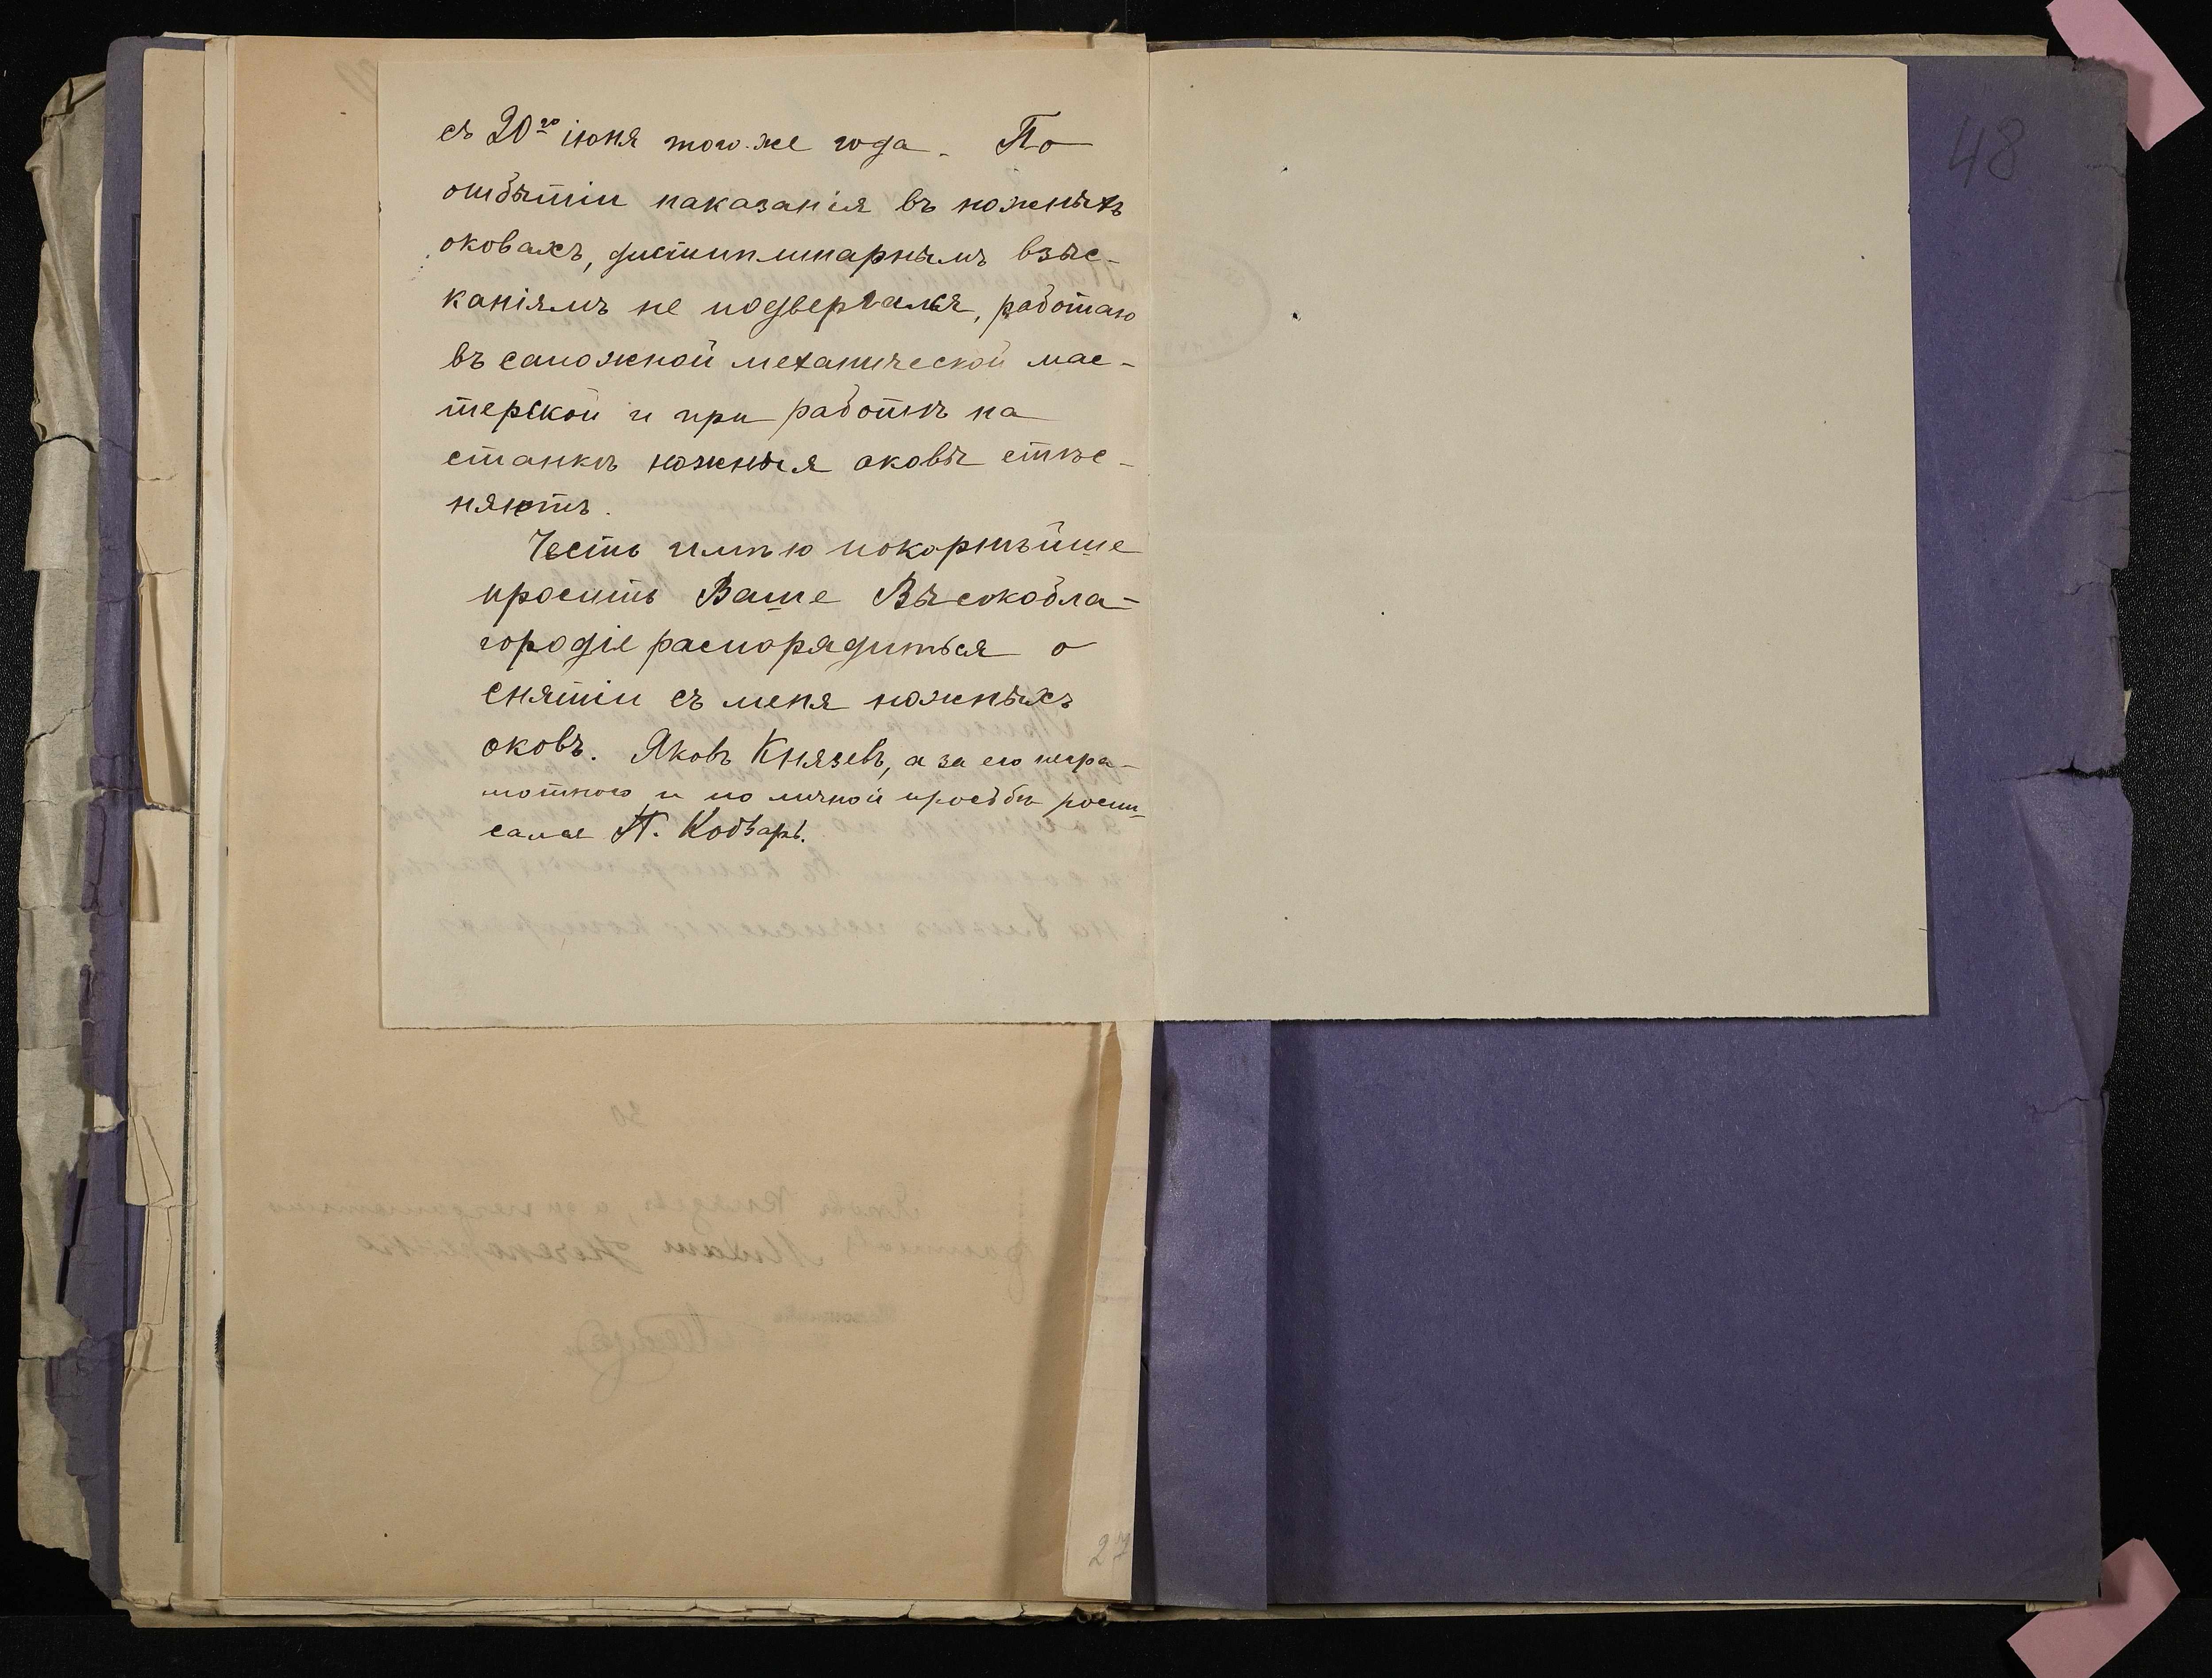 съ 20го іюня того-же года. По
отбытіи наказанія въ ножныхъ
оковахъ, дисциплинарнымъ взыс-
каніямъ не подвергался, работаю
въ сапожной механической мас-
терской и при работѣ на
станкѣ ножныя оковы стѣс-
няютъ.
Честь имѣю покорнѣйше
просить Ваше Высокобла-
городіе распорядиться о
снятіи съ меня ножныхъ
оковъ. Яковъ Князевъ, а за его негра-
мотного и по личной просьбѣ роспи-
сался П. Кобзарь.
48
27